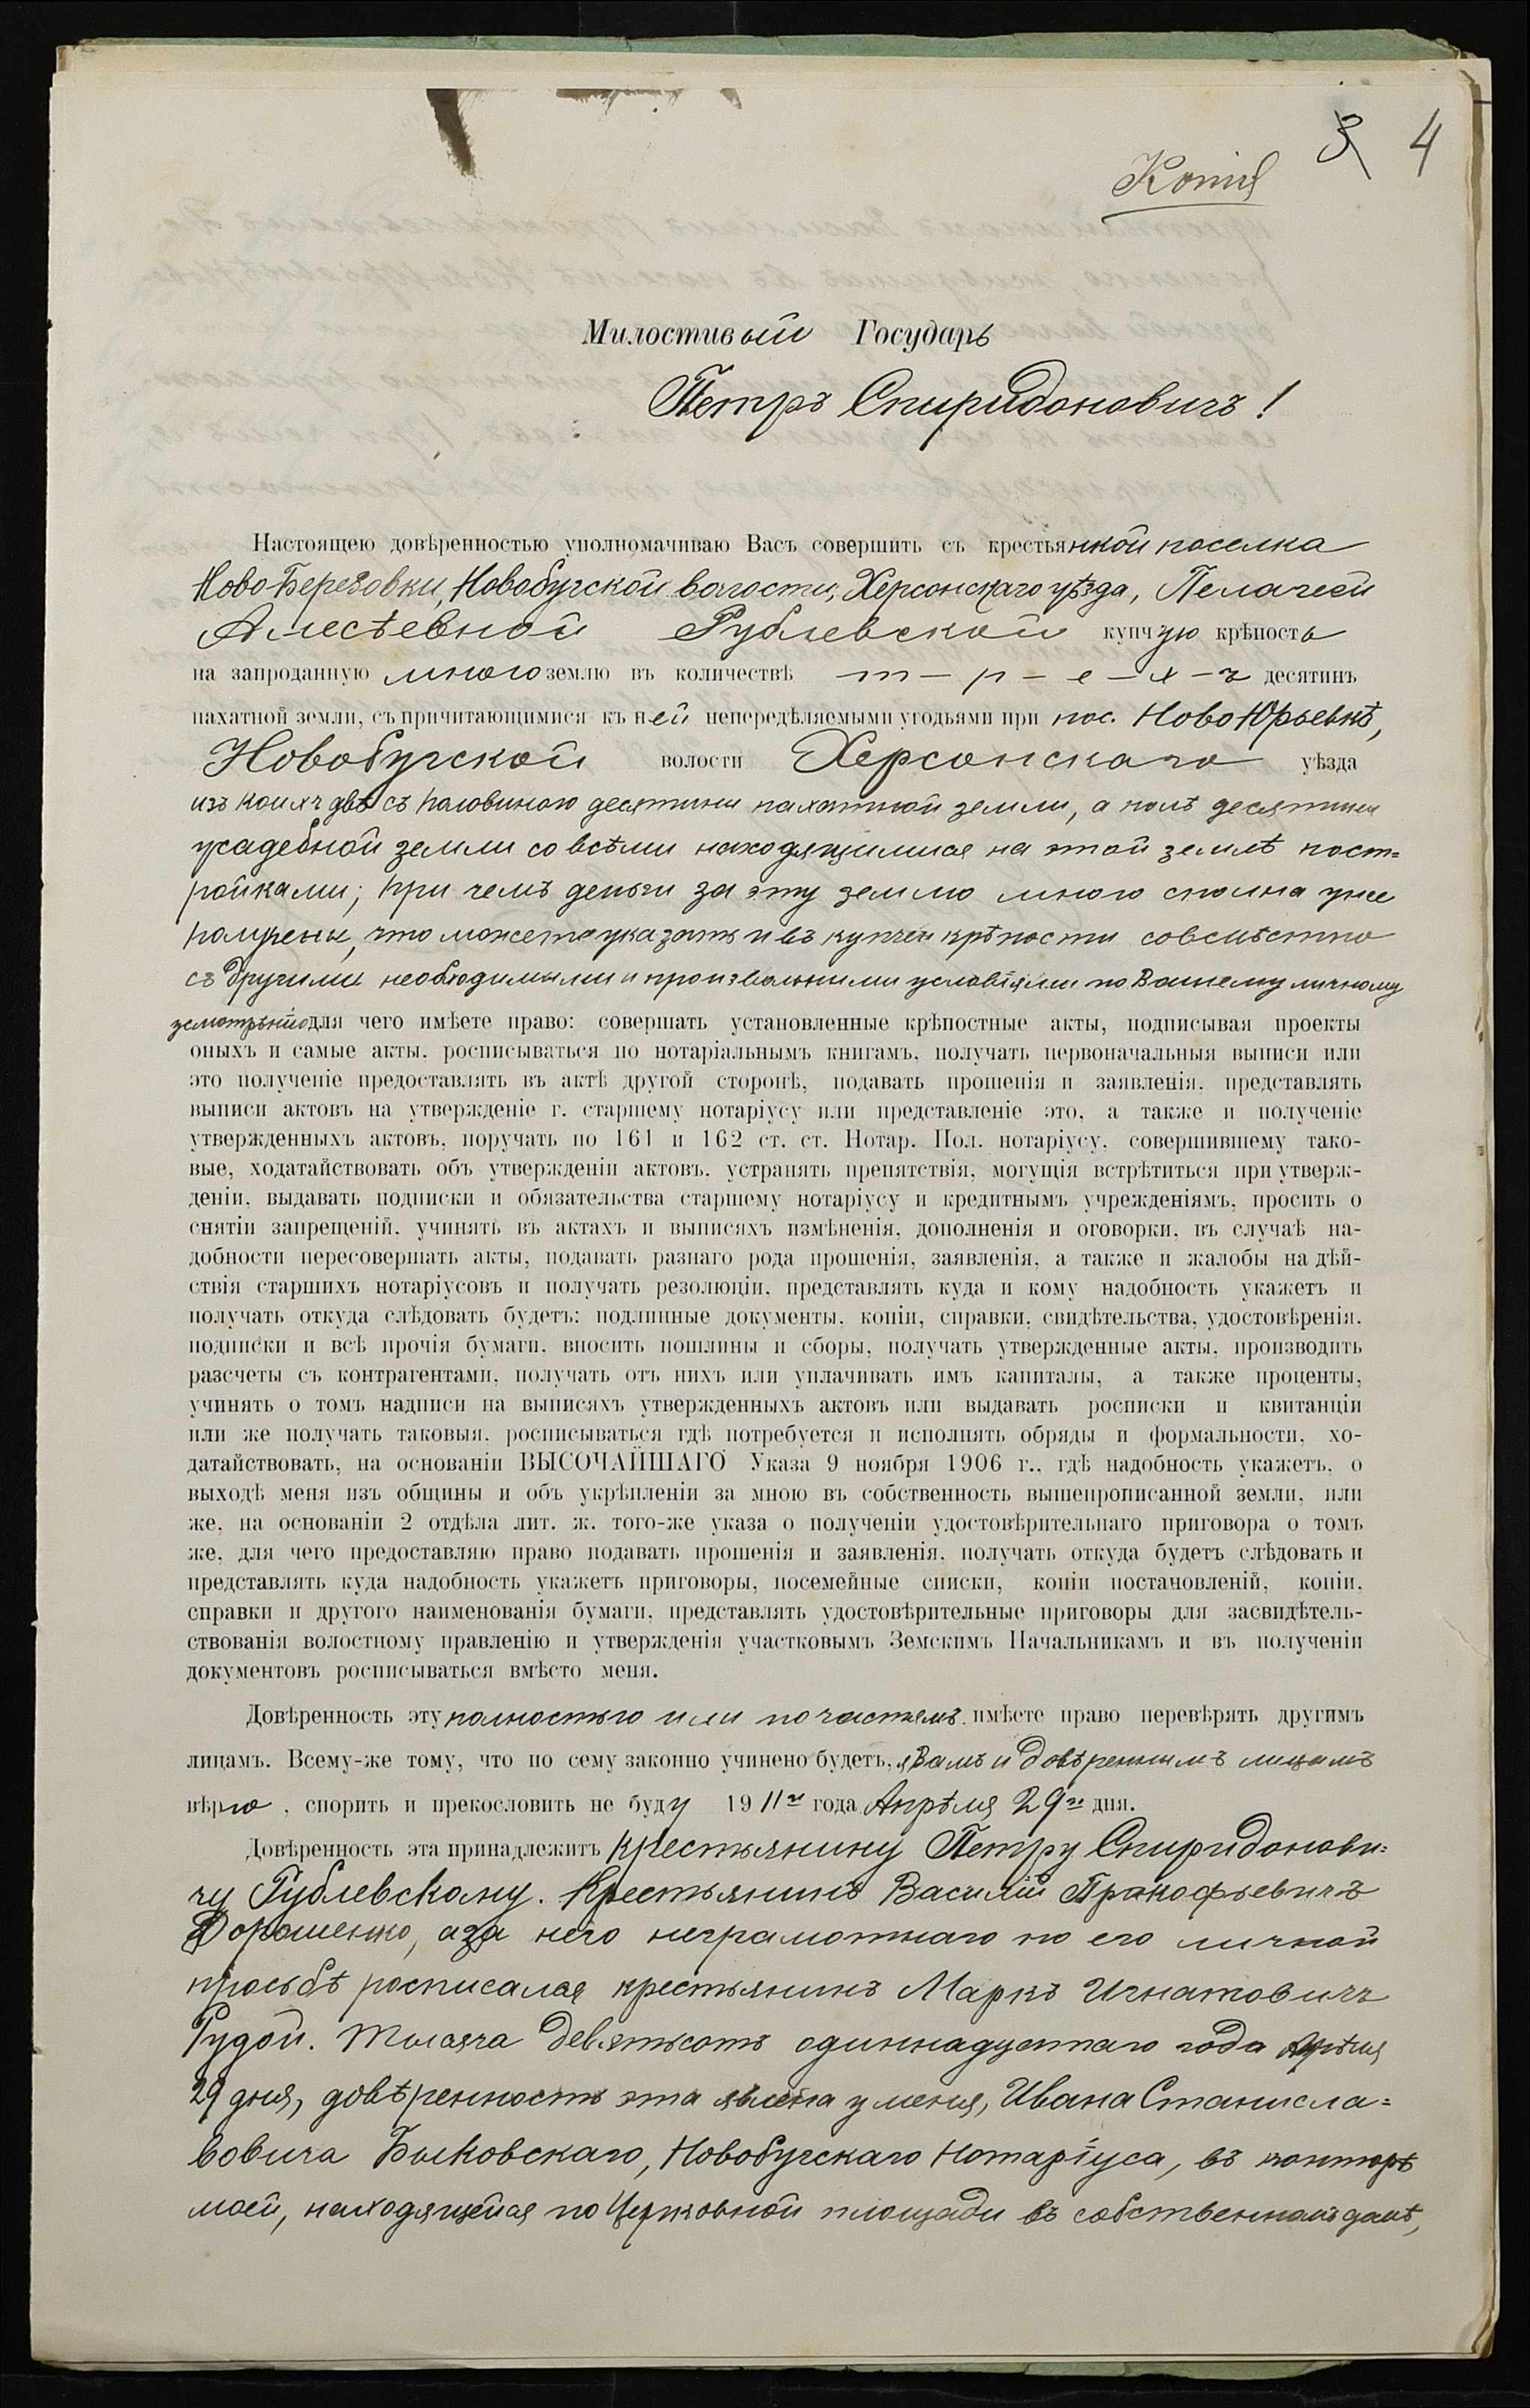 3 4
Копія
Милостивый Государь
Петръ Спиридоновичъ!
Настоящею довѣренностью уполномачиваю Васъ совершить съ крестьянкой поселка
Ново-Березовки, Новобугской волости, Херсонскаго уѣзда, Пелагеей
Алесѣевной Рублевской купчую крѣпость
на запроданную мною землю въ количествѣ т-р-е-х-ъ десятинъ
пахатной земли, съ причитающимися къ ней непередѣляемыми угодьями при пос. Ново Юрьевкѣ,
Новобугской волости Херсонскаго уѣзда
изъ коихъ двѣ съ половиною десятины пахатной земли, а полъ десятины
усадебной земли со всѣми находящимися на этой землѣ пост=
ройками; при чемъ деньги за эту землю мною сполна уже
получены, что можете указать и въ купчей крѣпости совмѣстно
съ другими необходимыми и произвольными условіями по Вашему личному
усмотрѣнію для чего имѣете право: совершать установленные крѣпостные акты, подписывая проекты
оныхъ и самые акты, росписываться по нотаріальнымъ книгамъ, получать первоначальныя выписи или
это полученіе предоставлять въ актѣ другой сторонѣ, подавать прошенія и заявленія, представлять
выписи актовъ на утвержденіе г. старшему нотаріусу или представленіе это, а также и полученіе
утвержденныхъ актовъ, поручать по 161 и 162 ст. ст. Нотар. Пол. нотаріусу, совершившему тако-
вые, ходатайствовать объ утвержденіи актовъ, устранять препятствія, могущія встрѣтиться при утверж-
деніи, выдавать подписки и обязательства старшему нотаріусу и кредитнымъ учрежденіямъ, просить о
снятіи запрещеній, учинять въ актахъ и выписяхъ измѣненія, дополненія и оговорки, въ случаѣ на-
добности пересовершать акты, подавать разнаго рода прошенія, заявленія, а также и жалобы на дѣй-
ствія старшихъ нотаріусовъ и получать резолюціи, представлять куда и кому надобность укажетъ и
получать откуда слѣдовать будетъ: подлинные документы, копіи, справки, свидѣтельства, удостовѣренія,
подписки и всѣ прочія бумаги, вносить пошлины и сборы, получать утвержденные акты, производить
разсчеты съ контрагентами, получать отъ нихъ или уплачивать имъ капиталы, а также проценты,
учинять о томъ надписи на выписяхъ утвержденныхъ актовъ или выдавать росписки и квитанціи
или же получать таковыя, росписываться гдѣ потребуется и исполнять обряды и формальности, хо-
датайствовать, на основаніи ВЫСОЧАЙШАГО Указа 9 ноября 1906 г., гдѣ надобность укажетъ, о
выходѣ меня изъ общины и объ укрѣпленіи за мною въ собственность вышепрописанной земли, или
же, на основаніи 2 отдѣла лит. ж. того-же указа о полученіи удостовѣрительнаго приговора о томъ
же, для чего предоставляю право подавать прошенія и заявленія, получать откуда будетъ слѣдовать и
представлять куда надобность укажетъ приговоры, посемейные списки, копіи постановленій, копіи,
справки и другого наименованія бумаги, представлять удостовѣрительные приговоры для засвидѣтель-
ствованія волостному правленію и утвержденія участковымъ Земскимъ Начальникамъ и въ полученіи
документовъ росписываться вмѣсто меня.
Довѣренность эту полностью или по частямъ имѣете право перевѣрять другимъ
лицамъ. Всему-же тому, что по сему законно учинено будетъ, я Вамъ и довѣреннымъ лицамъ
вѣрю, спорить и прекословить не буду 1911 г. года Апрѣля 29го дня.
Довѣренность эта принадлежитъ крестьянину Петру Спиридонови=
чу Рублевскому. Крестьянинъ Василій Пракофьевичъ
Дорошенко, а за него неграмотнаго по его личной
просьбѣ росписался крестьянинъ Маркъ Игнатовичъ
Рудой. Тысяча девятьсотъ одиннадцатаго года Апрѣля
29 дня, довѣренность эта явлена у меня, Ивана Станисла=
вовича Быковскаго, Новобугскаго Нотаріуса, въ конторѣ
моей, находящейся по Церковной площади въ собственномъ домѣ,